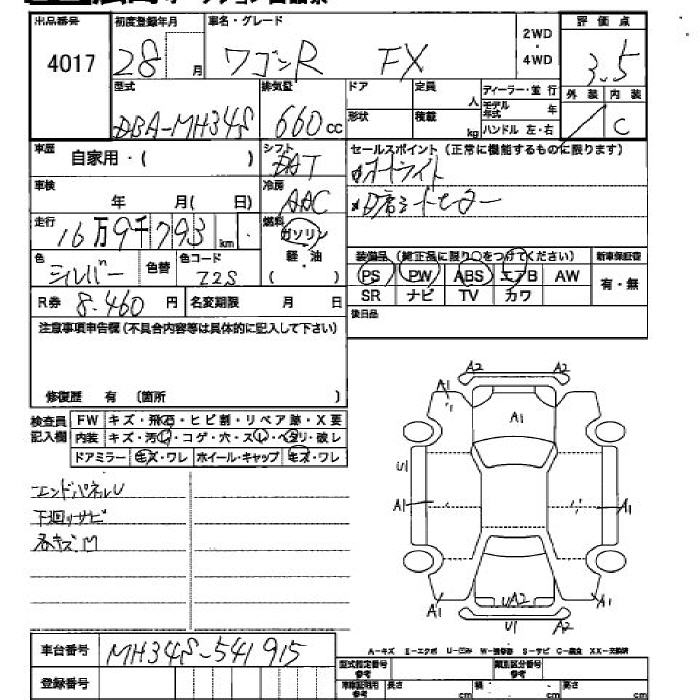 出品番号 初度登録年月 車名・グレード 2WD・4WD 評価点
4017 28 月 ワゴンR FX 3.5
外装 内装
C
型式 排気量 ドア 定員 人 ディーラー・並行
DBA-MH34S 660 cc 形状 積載 kg モデル年式 年
ハンドル 左・右
車歴 自家用・( ) シフト
セールスポイント(正常に機能するものに限ります)
オートライト
D席シートヒーター
車検 年 月( 日) 冷房 AAC
走行 16万9千793 km 燃料 ガソリン
軽・油
( )
色 シルバー 色替 色コード Z2S
R券 8.460 円 名変期限 月 日
装備品(純正品に限り○をつけてください) 新車保証書
PS PW ABS エアB AW 有・無
SR ナビ TV カワ
後日品
注意事項申告欄(不具合内容等は具体的に記入して下さい)
修復歴 有 (箇所 )
検査員記入欄
FW キズ・飛石・ヒビ割・リペア跡・X要
内装 キズ・汚れ・コゲ・穴・スレ・ヘタリ・破レ
ドアミラー キズ・ワレ ホイール・キャップ キズ・ワレ
エンドパネルU
下廻りサビ
各キズ.M
A2 A2
A1 A1
U1
A1 A1
A1 UA2 A1
U1 A2
A-キズ E-エクボ U-凹み W-補修跡 S-サビ C-腐食 XX-交換済
車台番号 MH34S-541915
登録番号
型式指定番号参考 類別区分番号参考
長さ cm 幅 cm 高さ cm